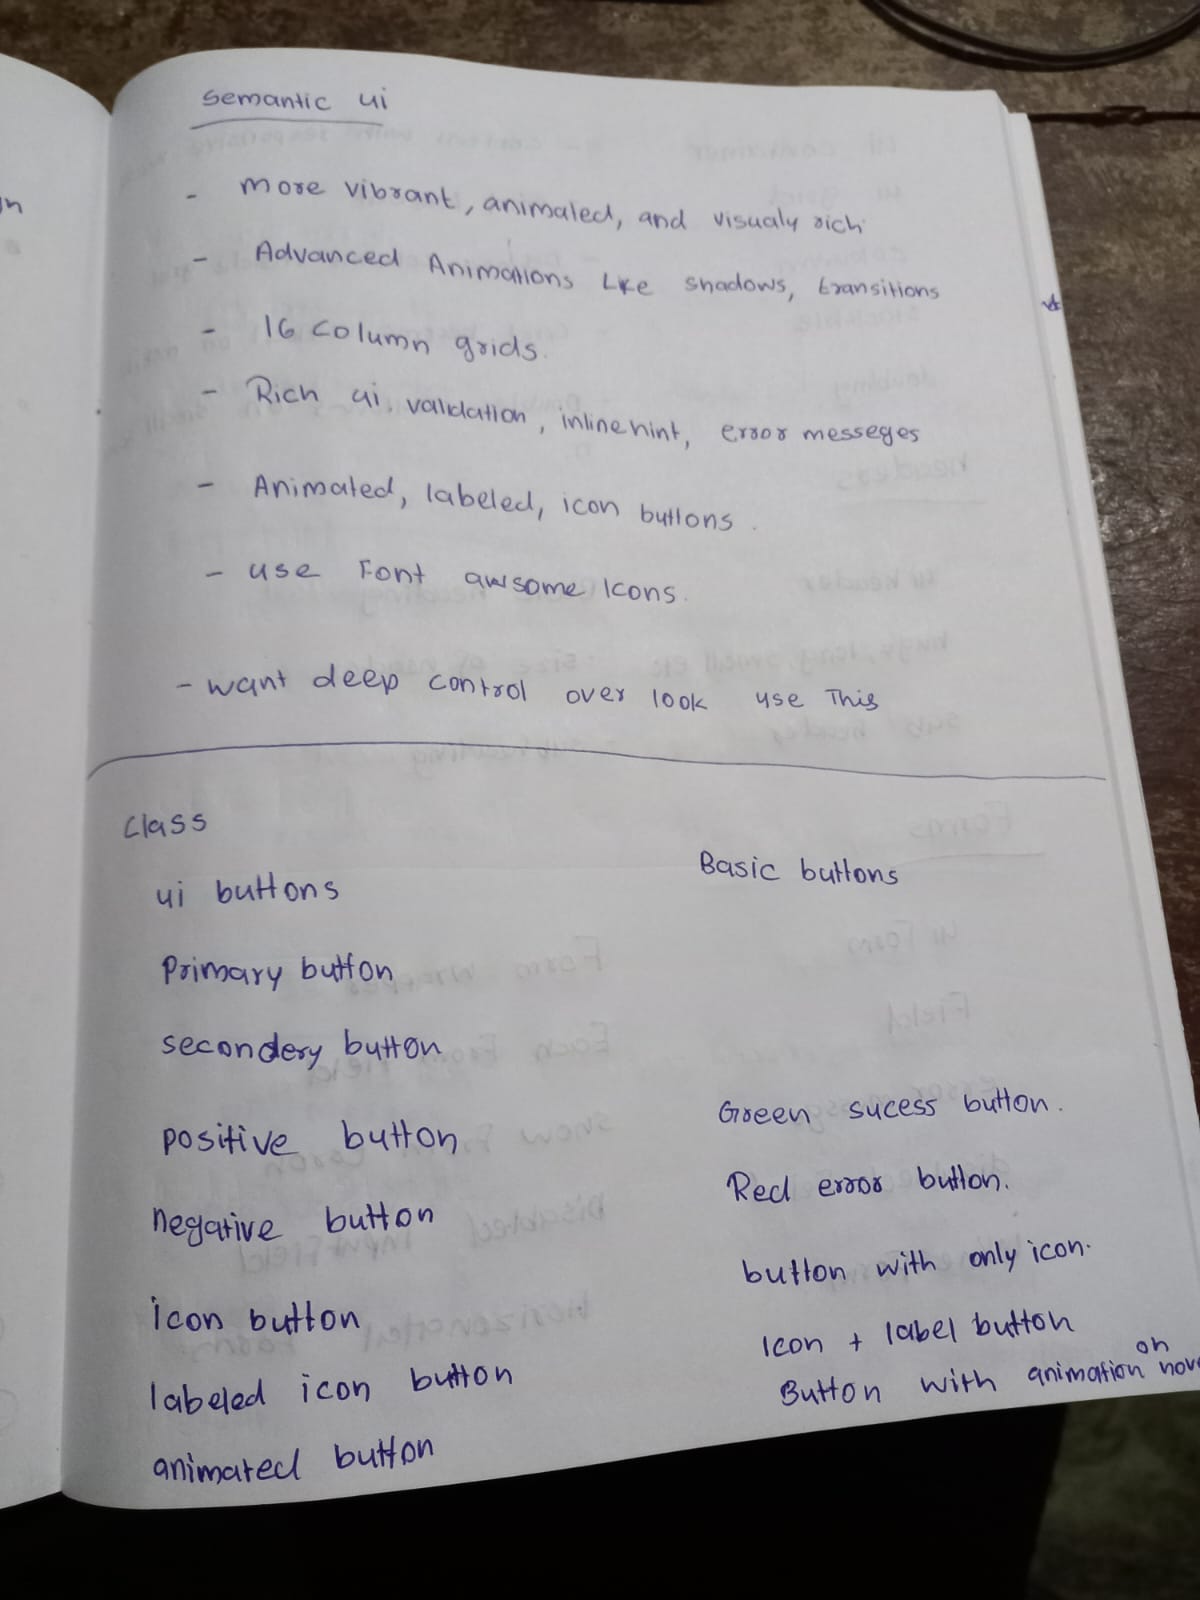 semantic ui
- more vibrant, animated, and visualy rich
- Advanced Animations Like shadows, transitions
- 16 column grids.
- Rich ui, validation, inline hint, error messeges
- Animated, labeled, icon buttons.
- use Font awsome Icons.
- want deep control over look use This
Class
ui buttons Basic buttons
Primary button
secondery button
positive button Green sucess button.
negative button Red error button.
icon button button with only icon.
labeled icon button Icon + label button
animated button Button with animation on